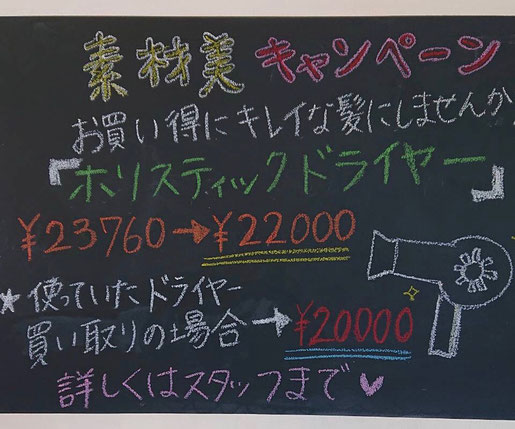 素材美キャンペーン
お買い得にキレイな髪にしませんか
『ホリスティックドライヤー』
¥23760→¥22000
★使っていたドライヤー
買い取りの場合→¥20000
詳しくはスタッフまで♥